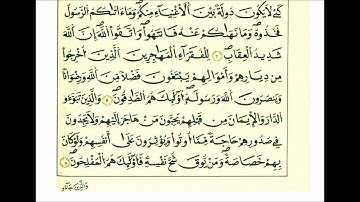 كَيْ لَا يَكُونَ دُولَةً بَيْنَ الْأَغْنِيَاءِ مِنكُمْ وَمَا ءَاتَاكُمُ الرَّسُولُ
فَخُذُوهُ وَمَا نَهَاكُمْ عَنْهُ فَانتَهُوا وَاتَّقُوا اللَّهَ إِنَّ اللَّهَ
شَدِيدُ الْعِقَابِ لِلْفُقَرَاءِ الْمُهَاجِرِينَ الَّذِينَ أُخْرِجُوا
مِن دِيَارِهِمْ وَأَمْوَالِهِمْ يَبْتَغُونَ فَضْلًا مِّنَ اللَّهِ وَرِضْوَانًا
وَيَنصُرُونَ اللَّهَ وَرَسُولَهُ أُولَٰئِكَ هُمُ الصَّادِقُونَ وَالَّذِينَ تَبَوَّءُو
الدَّارَ وَالْإِيمَانَ مِن قَبْلِهِمْ يُحِبُّونَ مَنْ هَاجَرَ إِلَيْهِمْ وَلَا يَجِدُونَ
فِي صُدُورِهِمْ حَاجَةً مِّمَّا أُوتُوا وَيُؤْثِرُونَ عَلَىٰ أَنفُسِهِمْ وَلَوْ كَانَ
بِهِمْ خَصَاصَةٌ وَمَن يُوقَ شُحَّ نَفْسِهِ فَأُولَٰئِكَ هُمُ الْمُفْلِحُونَ
وَالَّذِينَ جَاءُو